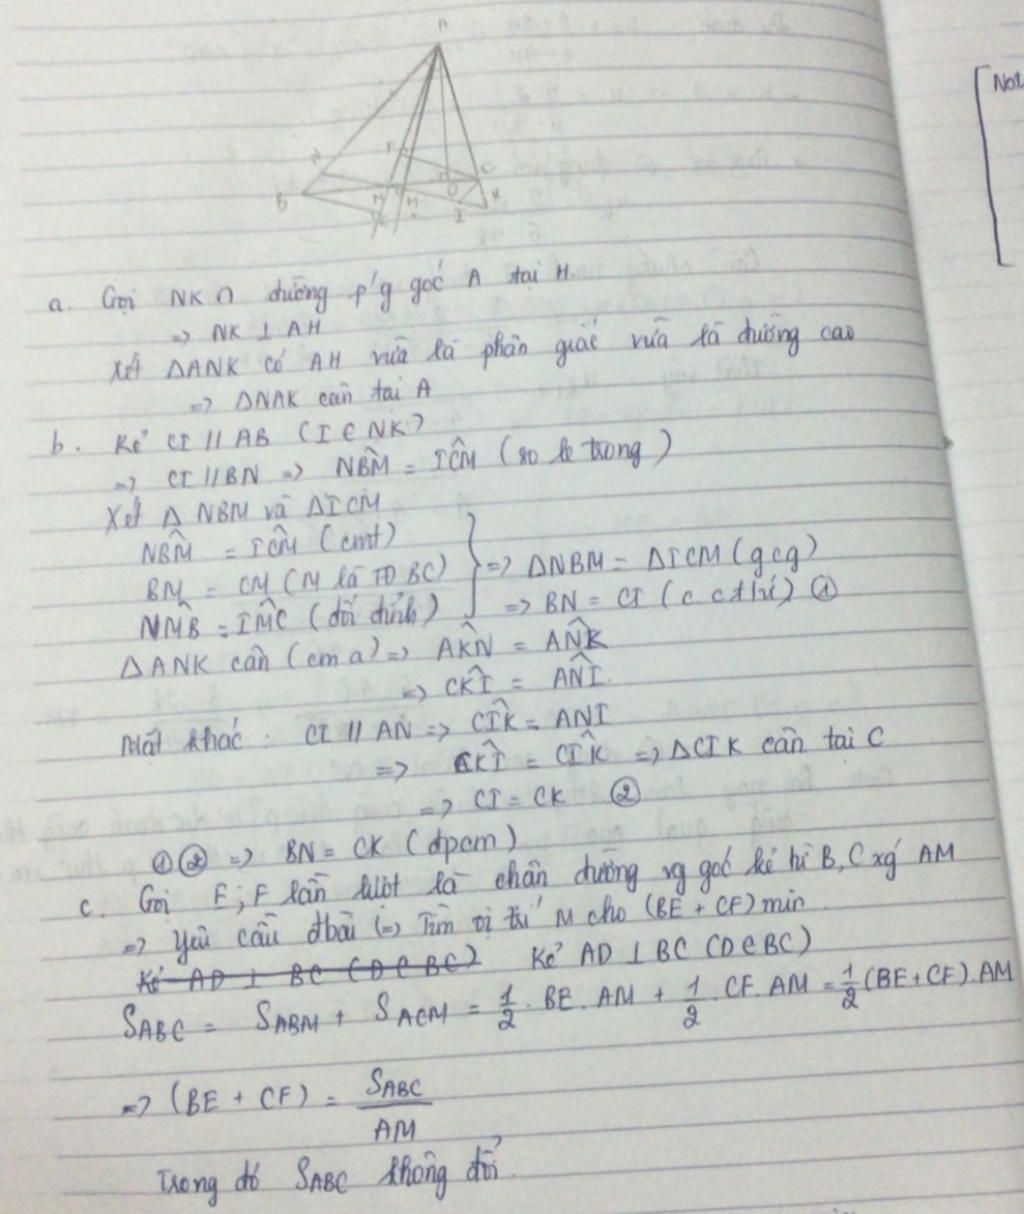 A
N
F
C
B
M
H
D
K
E
I
Not
a. Gọi NK ∩ đường p'g góc A tại H.
=> NK ⊥ AH
Xét ΔANK có AH vừa là phân giác vừa là đường cao
=> ΔNAK cân tại A
b. Kẻ CI // AB (I ∈ NK)
=> CI // BN => NB̂M = IĈM (so le trong)
Xét Δ NBM và ΔICM
NB̂M = IĈM (cmt)
BM = CM (M là TĐ BC)
NM̂B = IM̂C (đối đỉnh)
=> ΔNBM = ΔICM (gcg)
=> BN = CI (c.c.t.ứ) ①
ΔANK cân (cm a) => AK̂N = AN̂K
=> CK̂I = AN̂I.
Mặt khác: CI // AN => CÎK = ANI
=> CK̂I = CÎK => ΔCIK cân tại C
=> CI = CK ②
①② => BN = CK (đpcm)
c. Gọi E; F lần lượt là chân đường vg góc kẻ từ B, C xg' AM
=> Yêu cầu đbài (=) Tìm vị trí M cho (BE + CF) min.
Kẻ AD ⊥ BC (D ∈ BC) Kẻ AD ⊥ BC (D ∈ BC)
SABC = SABM + SACM = 1/2 . BE . AM + 1/2 . CF . AM = 1/2 (BE + CF) . AM
=> (BE + CF) = SABC / AM
Trong đó SABC không đổi.